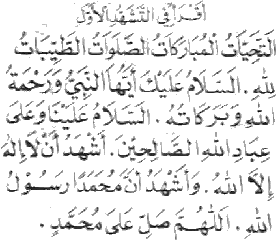 أَقْرَأُ فِي التَّشَهُّدِ الْأَوَّلِ
التَّحِيَّاتُ الْمُبَارَكَاتُ الصَّلَوَاتُ الطَّيِّبَاتُ
لِلّٰهِ. السَّلَامُ عَلَيْكَ أَيُّهَا النَّبِيُّ وَرَحْمَةُ
اللهِ وَبَرَكَاتُهُ. السَّلَامُ عَلَيْنَا وَعَلَى
عِبَادِ اللهِ الصَّالِحِيْنَ. أَشْهَدُ أَنْ لَا إِلٰهَ
إِلَّا اللهُ. وَأَشْهَدُ أَنَّ مُحَمَّدًا رَسُوْلُ
اللهِ. اَللّٰهُمَّ صَلِّ عَلَى مُحَمَّدٍ.